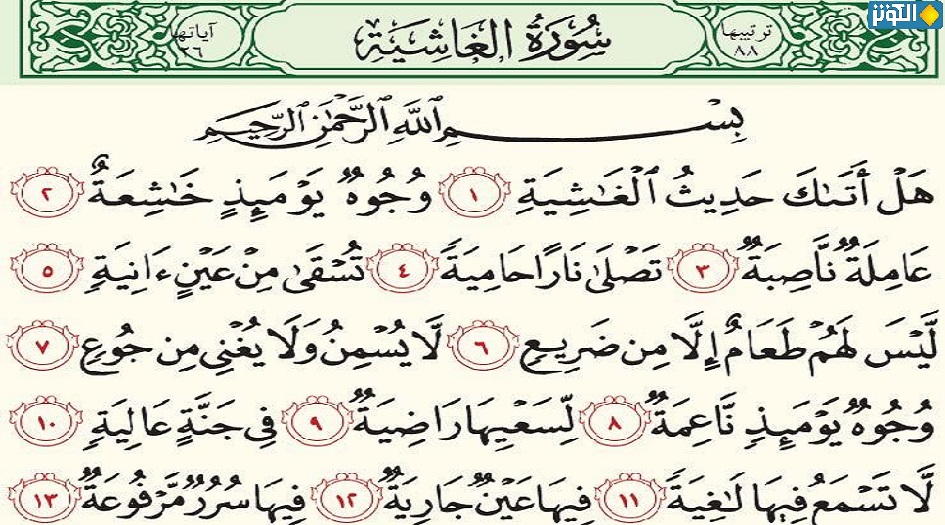 الكوثر
ترتيبها ٨٨ سُورَةُ الغَاشِيَة آياتها ٢٦
بِسْمِ ٱللَّهِ ٱلرَّحْمَٰنِ ٱلرَّحِيمِ
هَلْ أَتَىٰكَ حَدِيثُ ٱلْغَٰشِيَةِ ١ وُجُوهٌ يَوْمَئِذٍ خَٰشِعَةٌ ٢
عَامِلَةٌ نَّاصِبَةٌ ٣ تَصْلَىٰ نَارًا حَامِيَةً ٤ تُسْقَىٰ مِنْ عَيْنٍ ءَانِيَةٍ ٥
لَّيْسَ لَهُمْ طَعَامٌ إِلَّا مِن ضَرِيعٍ ٦ لَّا يُسْمِنُ وَلَا يُغْنِي مِن جُوعٍ ٧
وُجُوهٌ يَوْمَئِذٍ نَّاعِمَةٌ ٨ لِّسَعْيِهَا رَاضِيَةٌ ٩ فِي جَنَّةٍ عَالِيَةٍ ١٠
لَّا تَسْمَعُ فِيهَا لَٰغِيَةً ١١ فِيهَا عَيْنٌ جَارِيَةٌ ١٢ فِيهَا سُرُرٌ مَّرْفُوعَةٌ ١٣